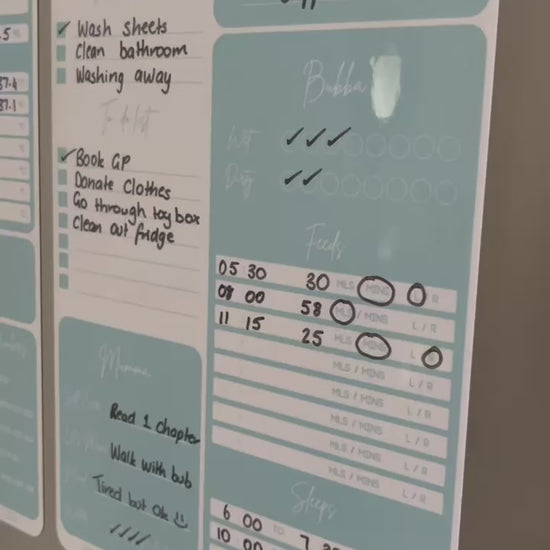 .5
37.4
37.1
Wash sheets
Clean bathroom
Washing away
To do list
Book GP
Donate Clothes
Go through toy box
Clean out fridge
Mumma
Read 1 chapter
Walk with bub
Tired but Ok
Bubba
Wet
Dirty
Feeds
05 30 30 MLS / MINS L / R
08 00 58 MLS / MINS L / R
11 15 25 MLS / MINS L / R
MLS / MINS L / R
MLS / MINS L / R
MLS / MINS L / R
MLS / MINS L / R
MLS / MINS L / R
Sleeps
6 00 TO 7
10 00